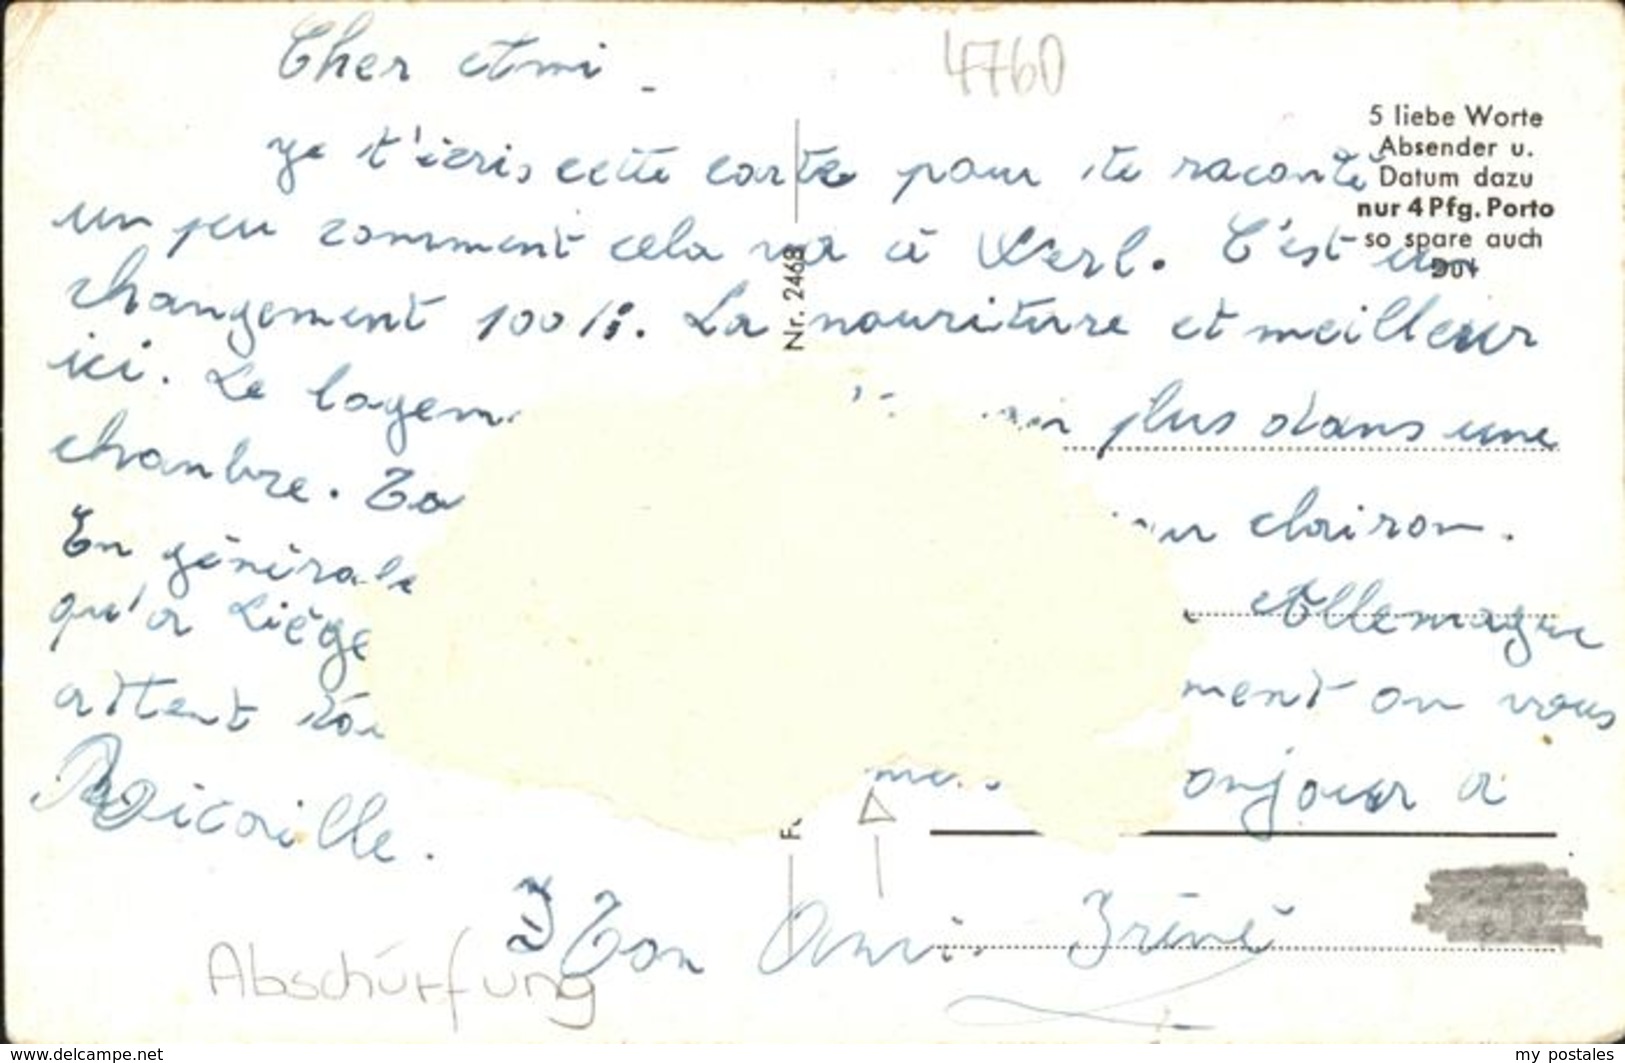 Cher Ami
4760
5 liebe Worte
Absender u.
Datum dazu
nur 4 Pfg. Porto
so spare auch
Du!
Nr. 2468
Je t'écris cette carte pour te raconté
un peu comment cela va à Werl. C'est un
changement 100%. La nouriture et meilleur
ici. Le logem plus dans une
chanbre. clairon.
En générale
qu'a Liège Allemagne
attent ment on vous
onjour a
Bicaille.
Ton Amis Iréné
Abschürfung
www.delcampe.net
my_postales